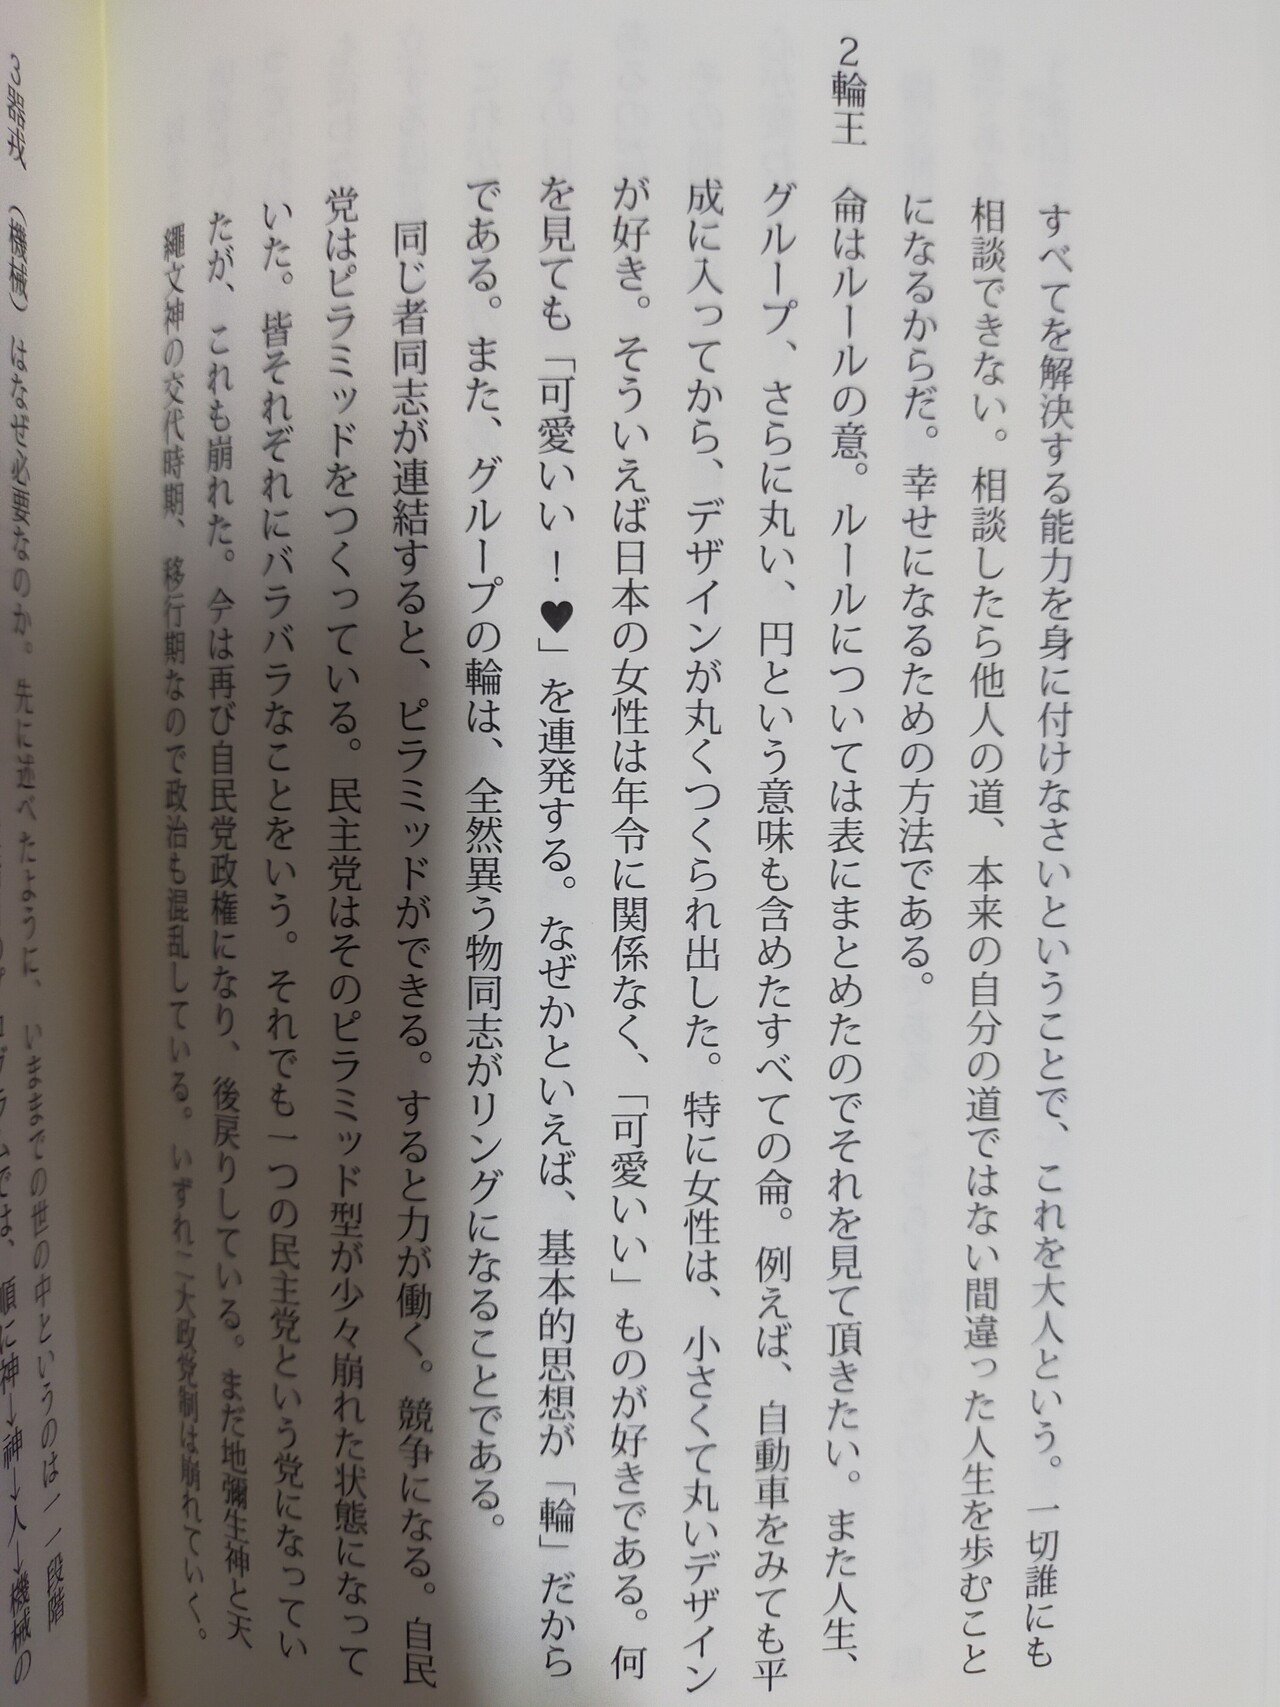 すべてを解決する能力を身に付けなさいということで、これを大人という。一切誰にも
相談できない。相談したら他人の道、本来の自分の道ではない間違った人生を歩むこと
になるからだ。幸せになるための方法である。
2輪王　侖はルールの意。ルールについては表にまとめたのでそれを見て頂きたい。また人生、
グループ、さらに丸い、円という意味も含めたすべての侖。例えば、自動車をみても平
成に入ってから、デザインが丸くつくられ出した。特に女性は、小さくて丸いデザイン
が好き。そういえば日本の女性は年令に関係なく、「可愛いい」ものが好きである。何
を見ても「可愛いい！♥」を連発する。なぜかといえば、基本的思想が「輪」だから
である。また、グループの輪は、全然異う物同志がリングになることである。
同じ者同志が連結すると、ピラミッドができる。すると力が働く。競争になる。自民
党はピラミッドをつくっている。民主党はそのピラミッド型が少々崩れた状態になって
いた。皆それぞれにバラバラなことをいう。それでも一つの民主党という党になってい
たが、これも崩れた。今は再び自民党政権になり、後戻りしている。まだ地彌生神と天
繩文神の交代時期、移行期なので政治も混乱している。いずれ二大政党制は崩れていく。
3器戎　（機械）はなぜ必要なのか。先に述べたように、いままでの世の中というのは
段階
では、順に神→神→人→機械の